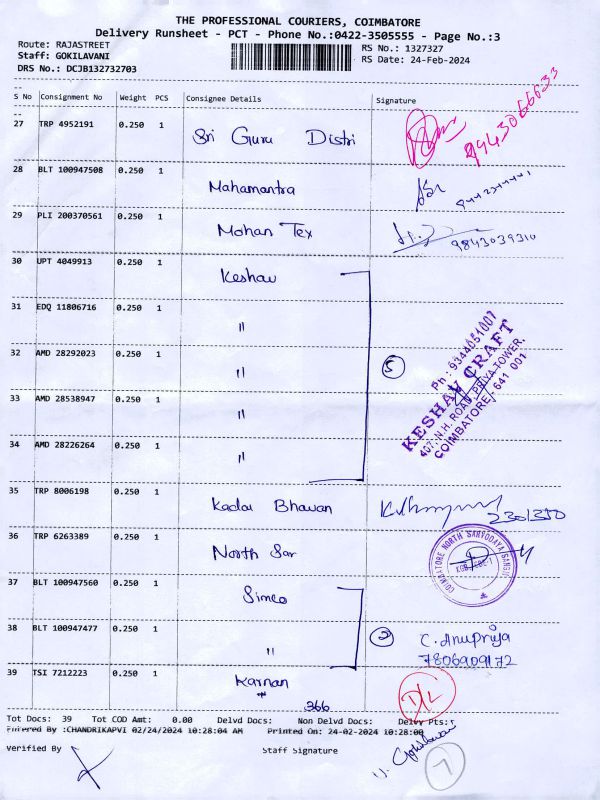 THE PROFESSIONAL COURIERS, COIMBATORE
Delivery Runsheet - PCT - Phone No.:0422-3505555 - Page No.:3
Route: RAJASTREET
Staff: GOKILAVANI
DRS No.: DCJB132732703
RS No.: 1327327
RS Date: 24-Feb-2024
S No Consignment No Weight PCS Consignee Details Signature
27 TRP 4952191 0.250 1 Sri Guru Distri 9943066633
28 BLT 100947508 0.250 1 Mahamantra
29 PLI 200370561 0.250 1 Mohan Tex 9843039310
30 UPT 4049913 0.250 1 Keshav
31 EDQ 11806716 0.250 1 "
32 AMD 28292023 0.250 1 "
33 AMD 28538947 0.250 1 "
34 AMD 28226264 0.250 1 "
5
Ph : 9344051007
KESHAV CRAFT
407, N.H. ROAD, PRIYA TOWER,
COIMBATORE - 641 001
35 TRP 8006198 0.250 1 Kadai Bhavan 2301350
36 TRP 6263389 0.250 1 North Sar
COIMBATORE NORTH SARVODAYA SANGH
37 BLT 100947560 0.250 1 Simco
38 BLT 100947477 0.250 1 "
2 C. Anupriya
7806909172
39 TSI 7212223 0.250 1 Karnan
D/L
366
Tot Docs: 39 Tot COD Amt: 0.00 Delvd Docs: Non Delvd Docs: Delvy Pts:
Entered By :CHANDRIKAPVI 02/24/2024 10:28:04 AM Printed On: 24-02-2024 10:28:00
Verified By Staff Signature
7